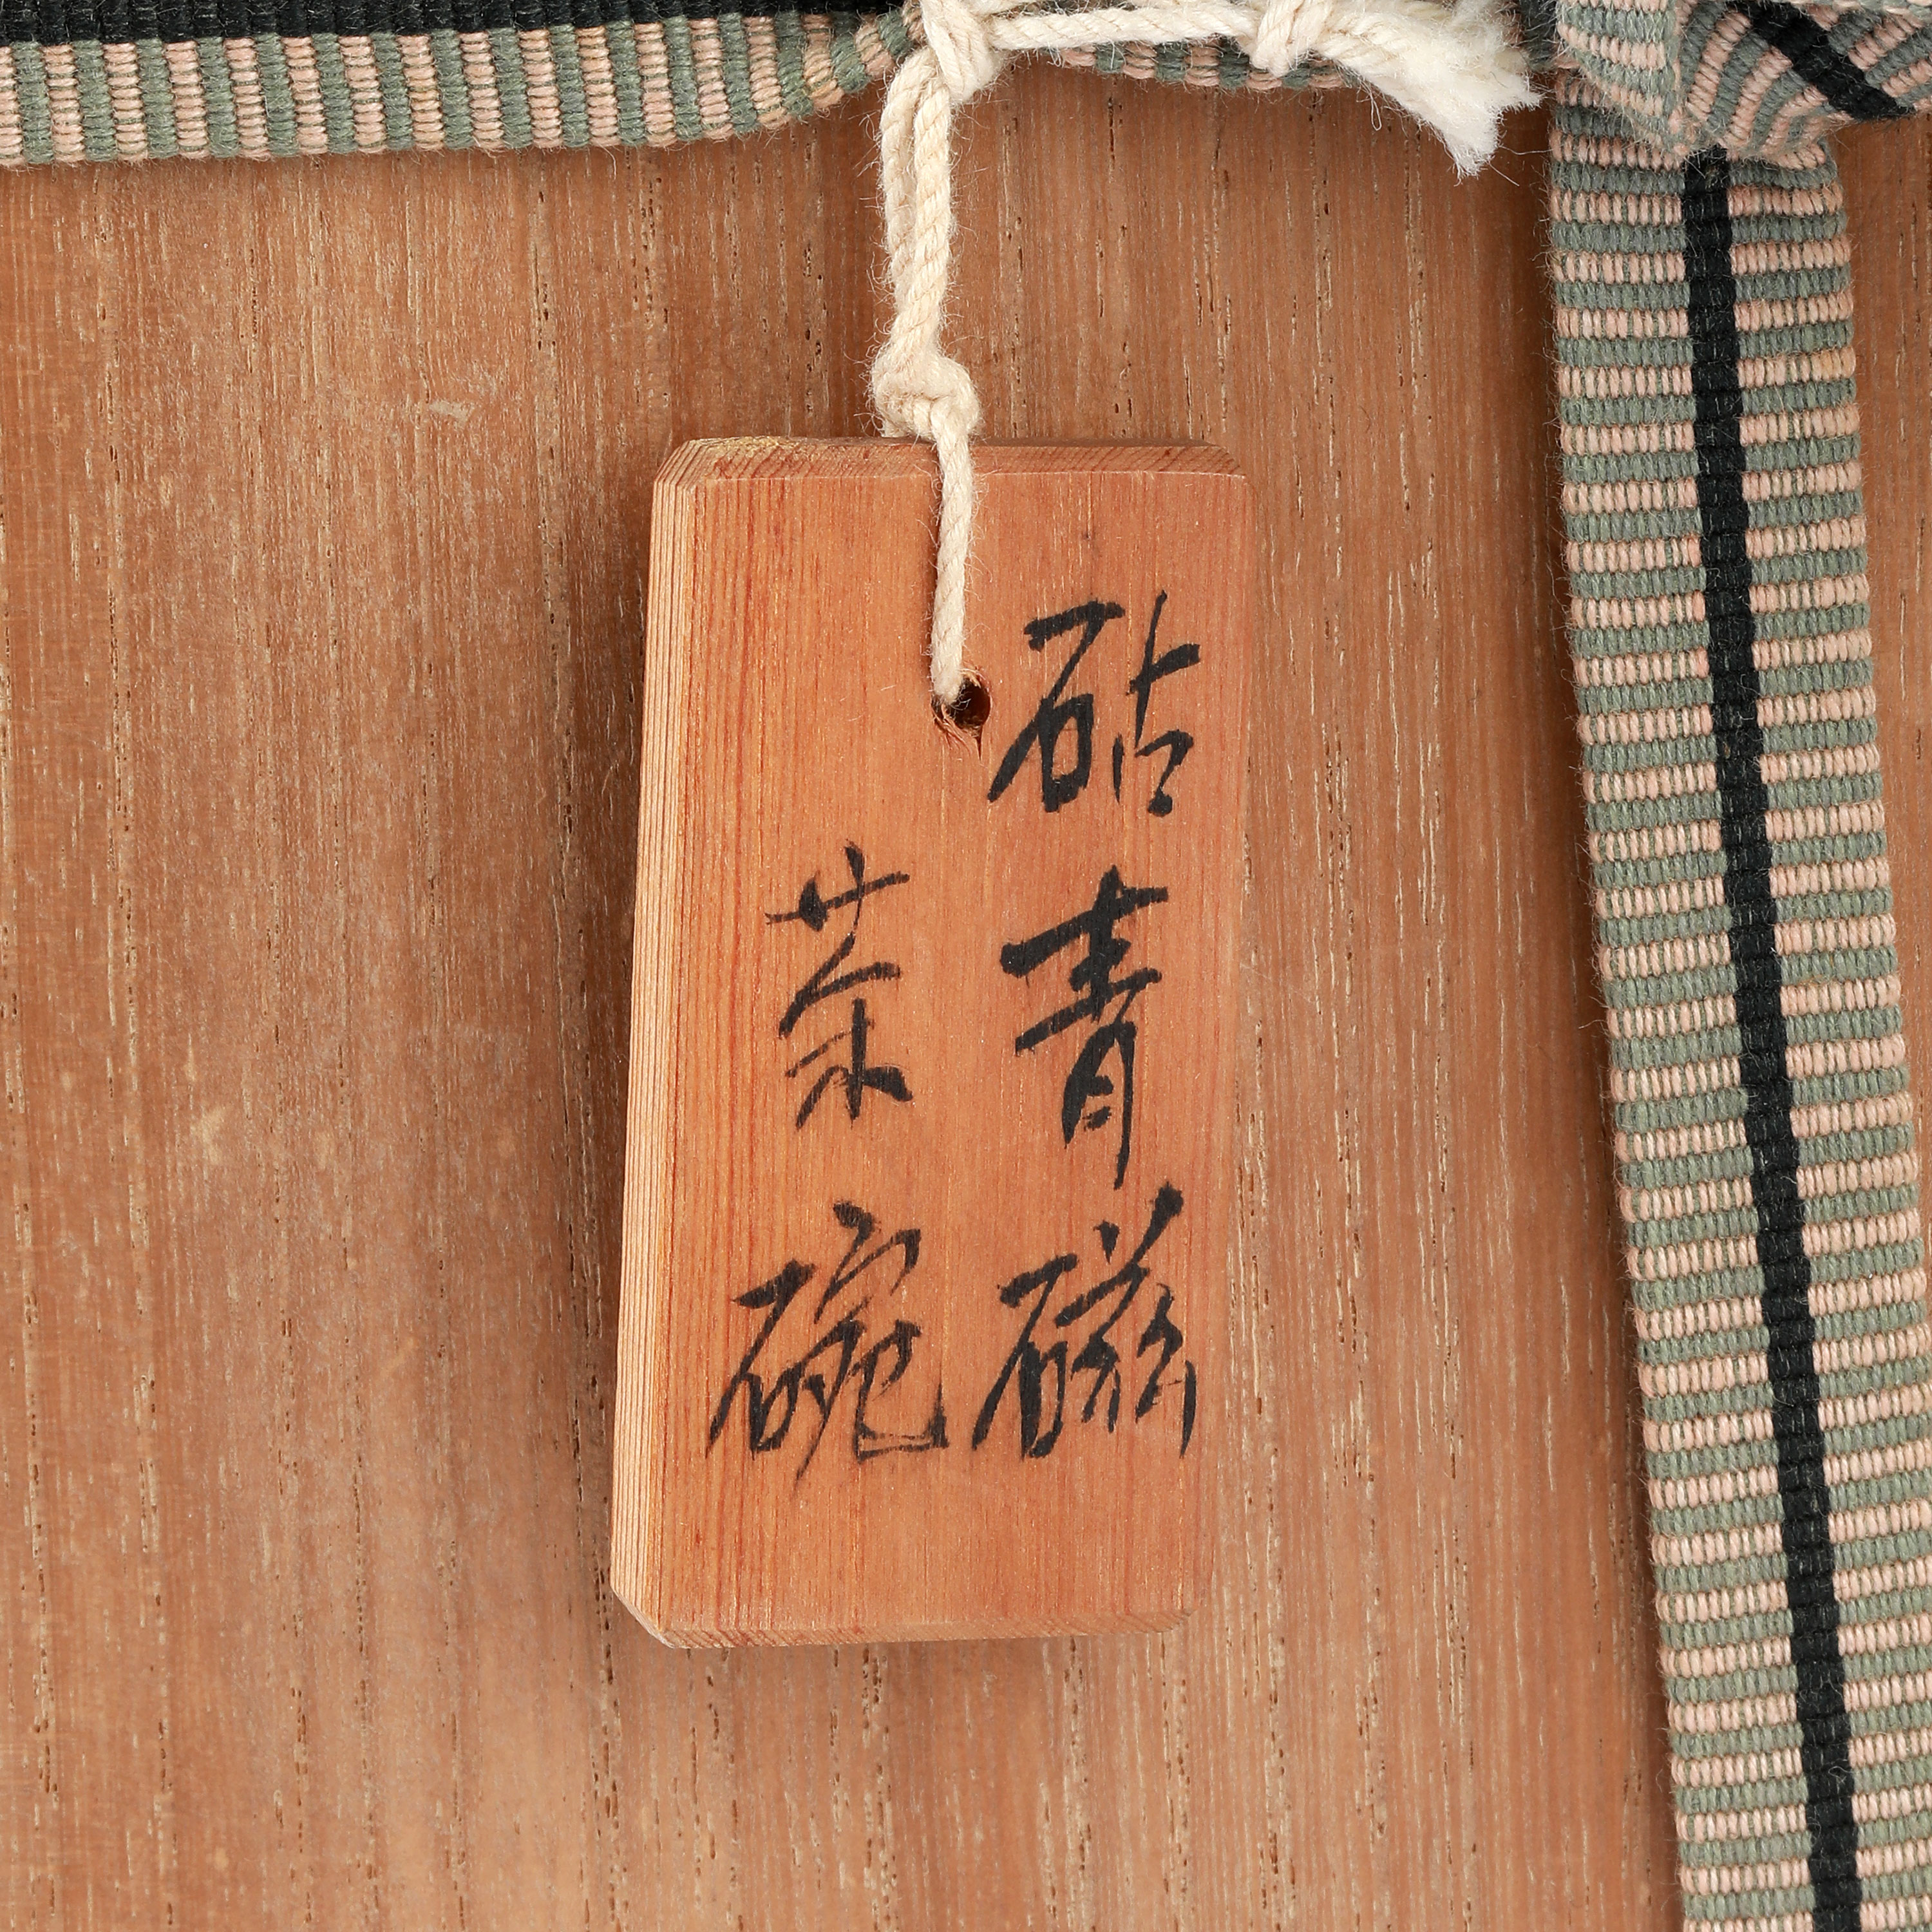 砧青磁
茶碗